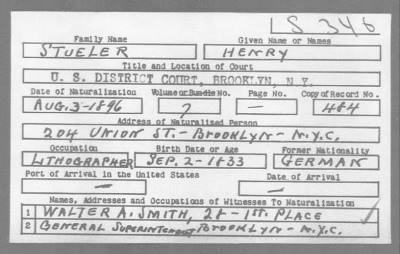 LS 346
Family Name Given Name or Names
STUELER HENRY
Title and Location of Court
U. S. DISTRICT COURT, BROOKLYN, N.Y.
Date of Naturalization Volume or Bundle No. Page No. Copy of Record No.
AUG. 3-1896 7 — 484
Address of Naturalized Person
204 UNION ST. - BROOKLYN - N.Y.C.
Occupation Birth Date or Age Former Nationality
LITHOGRAPHER SEP. 2-1833 GERMAN
Port of Arrival in the United States Date of Arrival
— —
Names, Addresses and Occupations of Witnesses To Naturalization
1 WALTER A. SMITH, 28 - 1ST. PLACE
2 GENERAL SUPERINTENDENT BROOKLYN - N.Y.C.